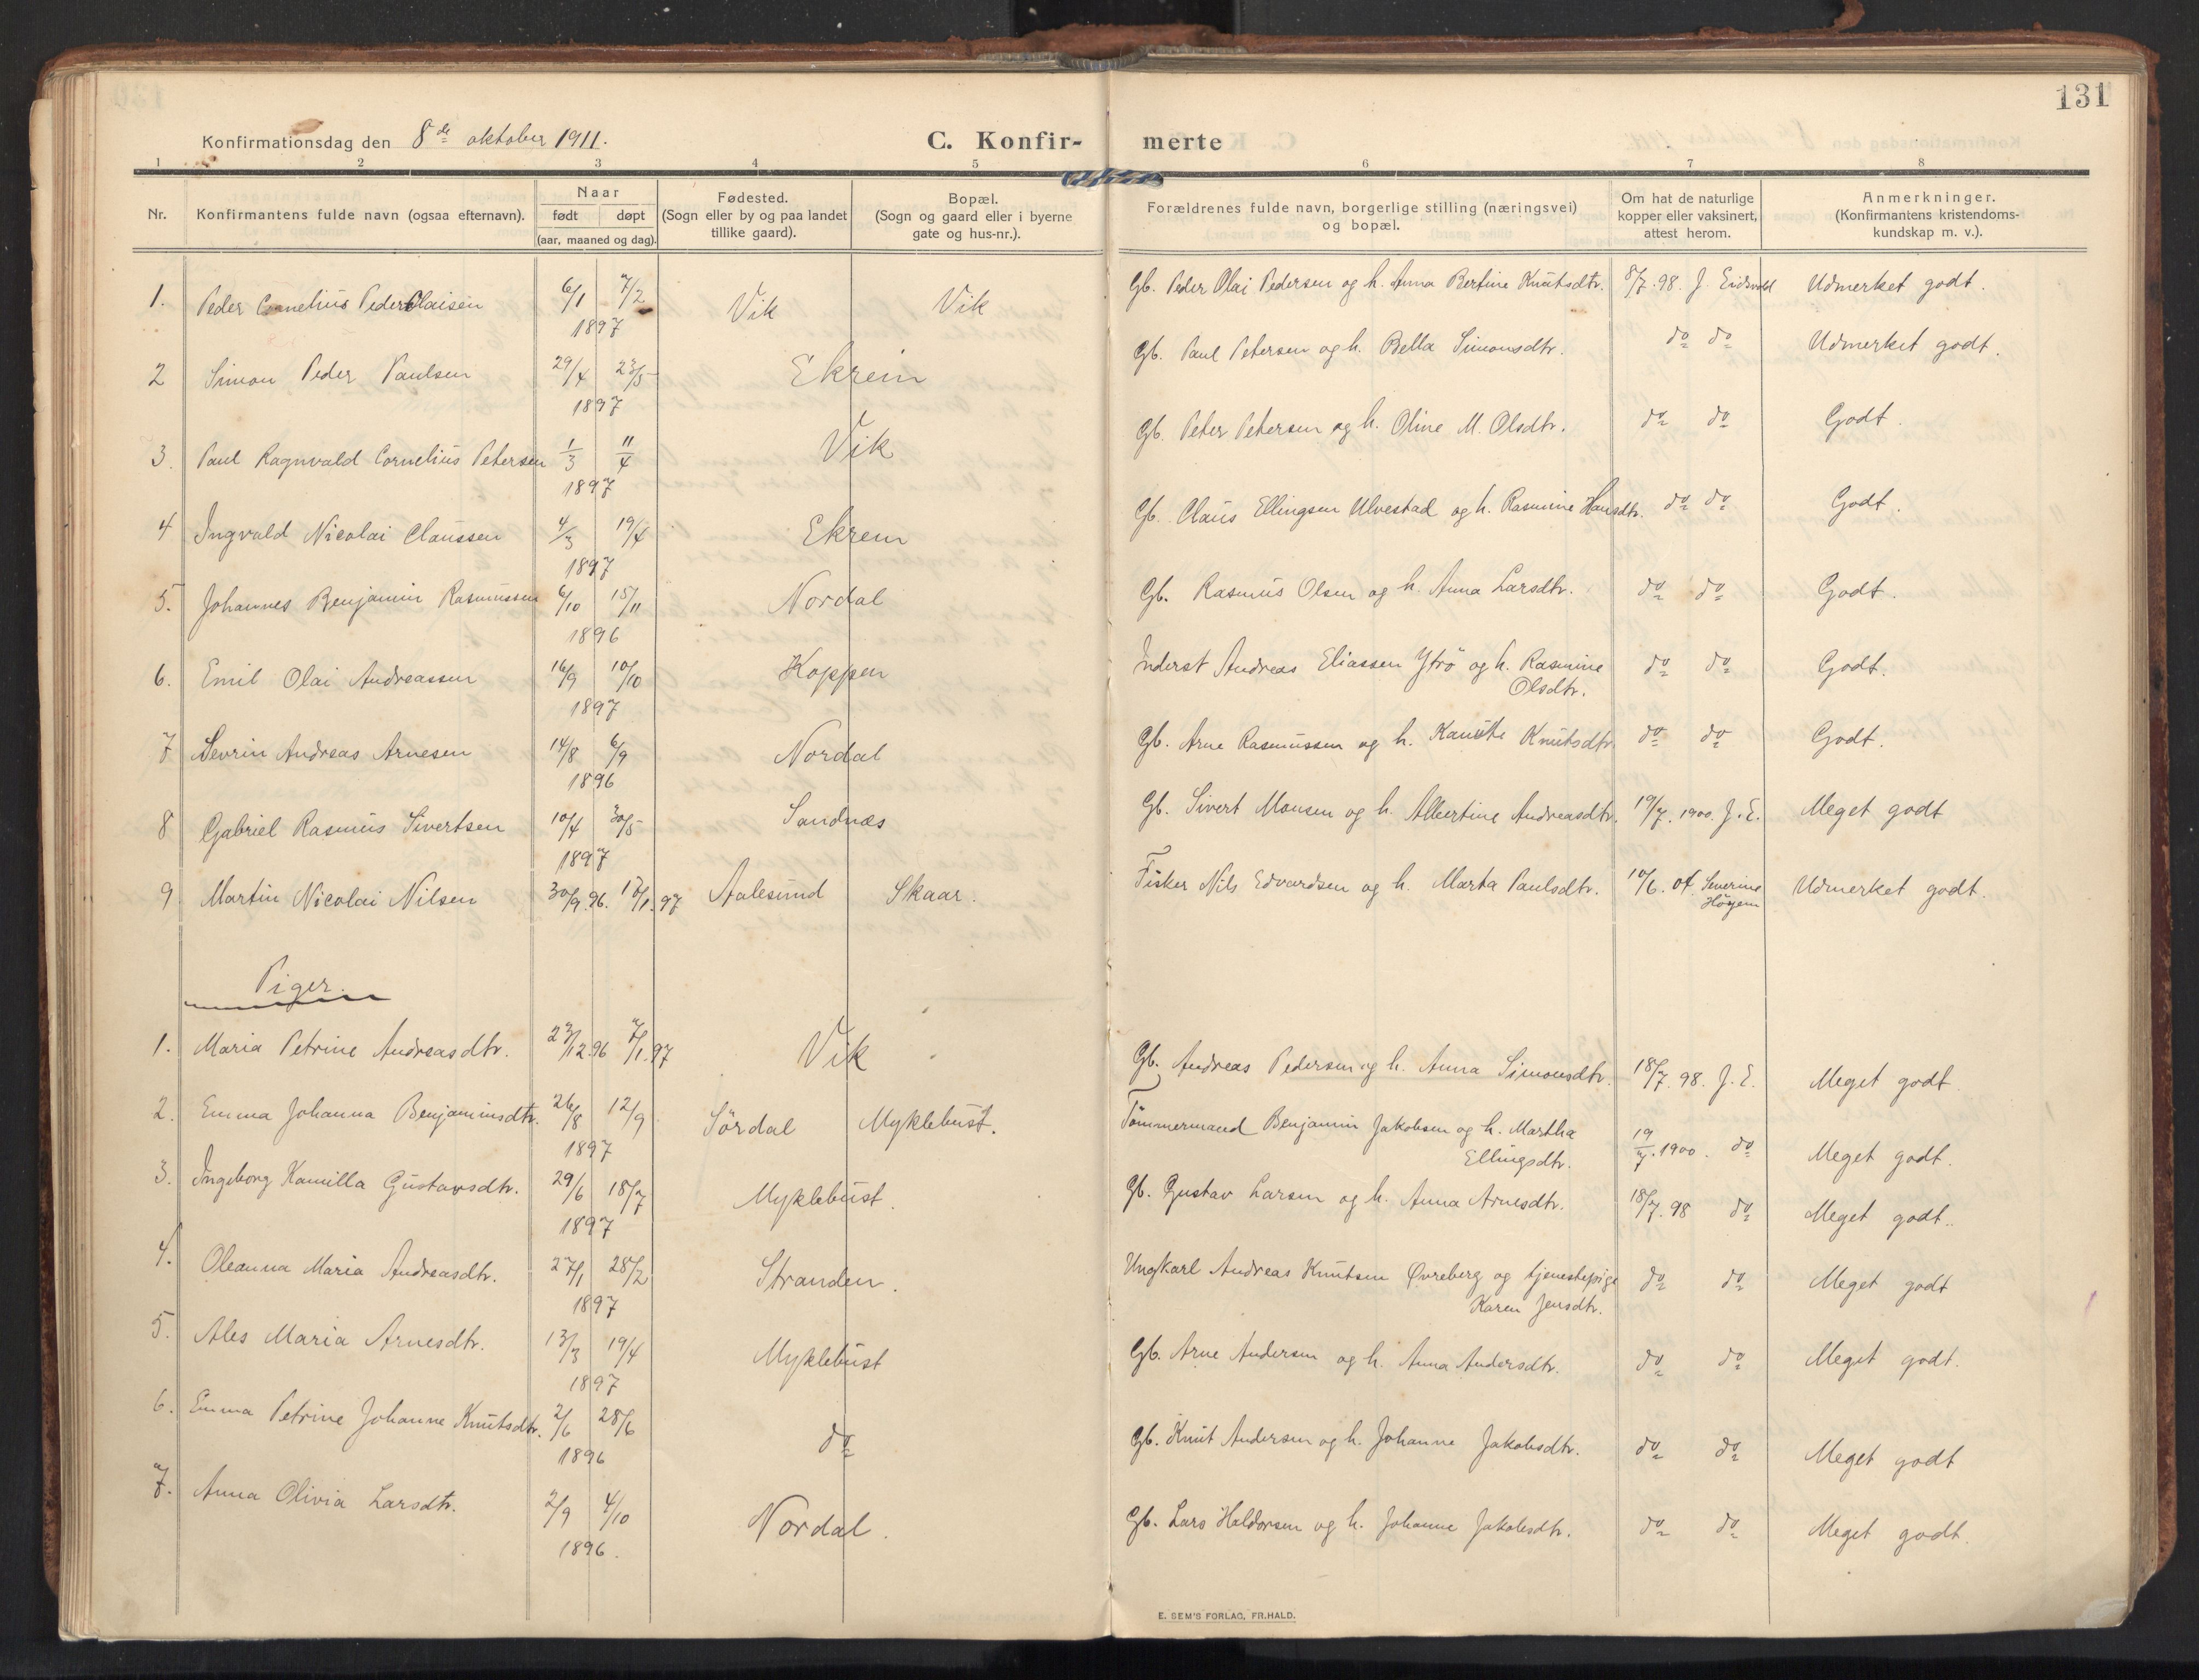 131
Konfirmationsdag den 8de oktober 1911.
C. Konfir- merte
1 2 3 4 5 6 7 8
Nr.
Konfirmantens fulde navn (ogsaa efternavn).
Naar
født døpt
(aar, maaned og dag).
Fødested.
(Sogn eller by og paa landet
tillike gaard).
Bopæl.
(Sogn og gaard eller i byerne
gate og hus-nr.).
Forældrenes fulde navn, borgerlige stilling (næringsvei)
og bopæl.
Om hat de naturlige
kopper eller vaksinert,
attest herom.
Anmerkninger.
(Konfirmantens kristendoms-
kundskap m. v.).
1. Peder Cornelius Pederolaisen 6/1 7/2 1897 Vik Vik Gb. Peder Olai Pedersen og h. Anna Bertine Knutsdtr. 8/7. 98. J. Eidsvold Udmerket godt.
2 Simon Peder Paulsen 29/4 23/5 1897 Ekrem Gb. Paul Petersen og h. Bella Simonsdtr. do do Udmerket godt.
3. Paul Ragnvald Cornelius Petersen 1/3 11/4 1897 Vik Gb. Peter Petersen og h. Oline M. Olsdtr. do do Godt.
4 Ingvald Nicolai Claussen 4/3 19/4 1897 Ekrem Gb. Claus Ellingsen Ulvestad og h. Rasmine Hansdtr. do do Godt.
5. Johannes Benjamin Rasmussen 6/10 15/11 1896 Nordal Gb. Rasmus Olsen og h. Anna Larsdtr. do do Godt.
6. Emil Olai Andreassen 16/9 10/10 1897 Koppen Inderst Andreas Eliassen Ytrö og h. Rasmine
Olsdtr. do do Godt.
7 Sevrin Andreas Arnesen 14/8 6/9 1896 Nordal Gb. Arne Rasmussen og h. Kanutte Knutsdtr do do Godt.
8 Gabriel Rasmus Sivertsen 10/4 30/5 1897 Sandnæs Gb. Sivert Monsen og h. Albertine Andreasdtr. 19/7. 1900. J. E. Meget godt
9 Martin Nicolai Nilsen 30/9. 96. 17/1. 97 Aalesund Skaar. Fisker Nils Edvardsen og h. Marta Paulsdtr. 10/6. 07. Severine
Höyem Udmerket godt.
Piger.
1. Maria Petrine Andreasdtr. 23/12 96 7/1. 97 Vik Gb. Andreas Pedersen og h. Anna Simonsdtr. 18/7. 98. J. E. Meget godt.
2. Emma Johanna Benjaminsdtr. 26/8 12/9 1897 Sördal Myklebust. Tömmermand Benjamin Jakobsen og h. Martha
Ellingsdtr. 19/7. 1900. do Meget godt.
3. Ingeborg Kamilla Gustavsdtr. 29/6 18/7 1897 Myklebust. Gb. Gustav Larsen og h. Anna Arnesdtr. 18/7. 98 do Meget godt.
4. Oleanna Maria Andreasdtr. 27/1 28/2 1897 Stranden. Ungkarl Andreas Knutsen Øvreberg og tjenestepige
Karen Jensdtr. do do Meget godt
5. Ales Maria Arnesdtr. 13/3 19/4 1897 Myklebust Gb. Arne Andersen og h. Anna Andersdtr. do do Meget godt.
6. Emma Petrine Johanne Knutsdtr. 2/6 28/6 1896 do Gb. Knut Andersen og h. Johanne Jakobsdtr. do do Meget godt
7. Anna Olivia Larsdtr. 2/9 4/10 1896. Nordal. Gb. Lars Haldorsen og h. Johanne Jakobsdtr. do do Meget godt.
E. SEM'S FORLAG, FR.HALD.